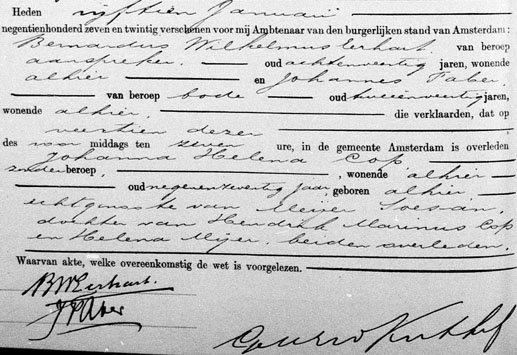 Heden vijftien Januari
negentienhonderd zeven en twintig verschenen voor mij Ambtenaar van den burgerlijken stand van Amsterdam:
Bernardus Wilhelmus Lerhart. van beroep
aanspreker. oud achtenveertig jaren, wonende
alhier en Johannes Faber,
van beroep bode oud tweeenveertig jaren,
wonende alhier, die verklaarden, dat op
veertien dezer
des voor middags ten zeven ure, in de gemeente Amsterdam is overleden
Johanna Helena Cop
zonder beroep, wonende alhier
oud negenenveertig jaar, geboren alhier
echtgenoote van Meijer Soesan,
dochter van Hendrik Marinus Cop
en Helena Mijer. beiden overleden.
Waarvan akte, welke overeenkomstig de wet is voorgelezen.